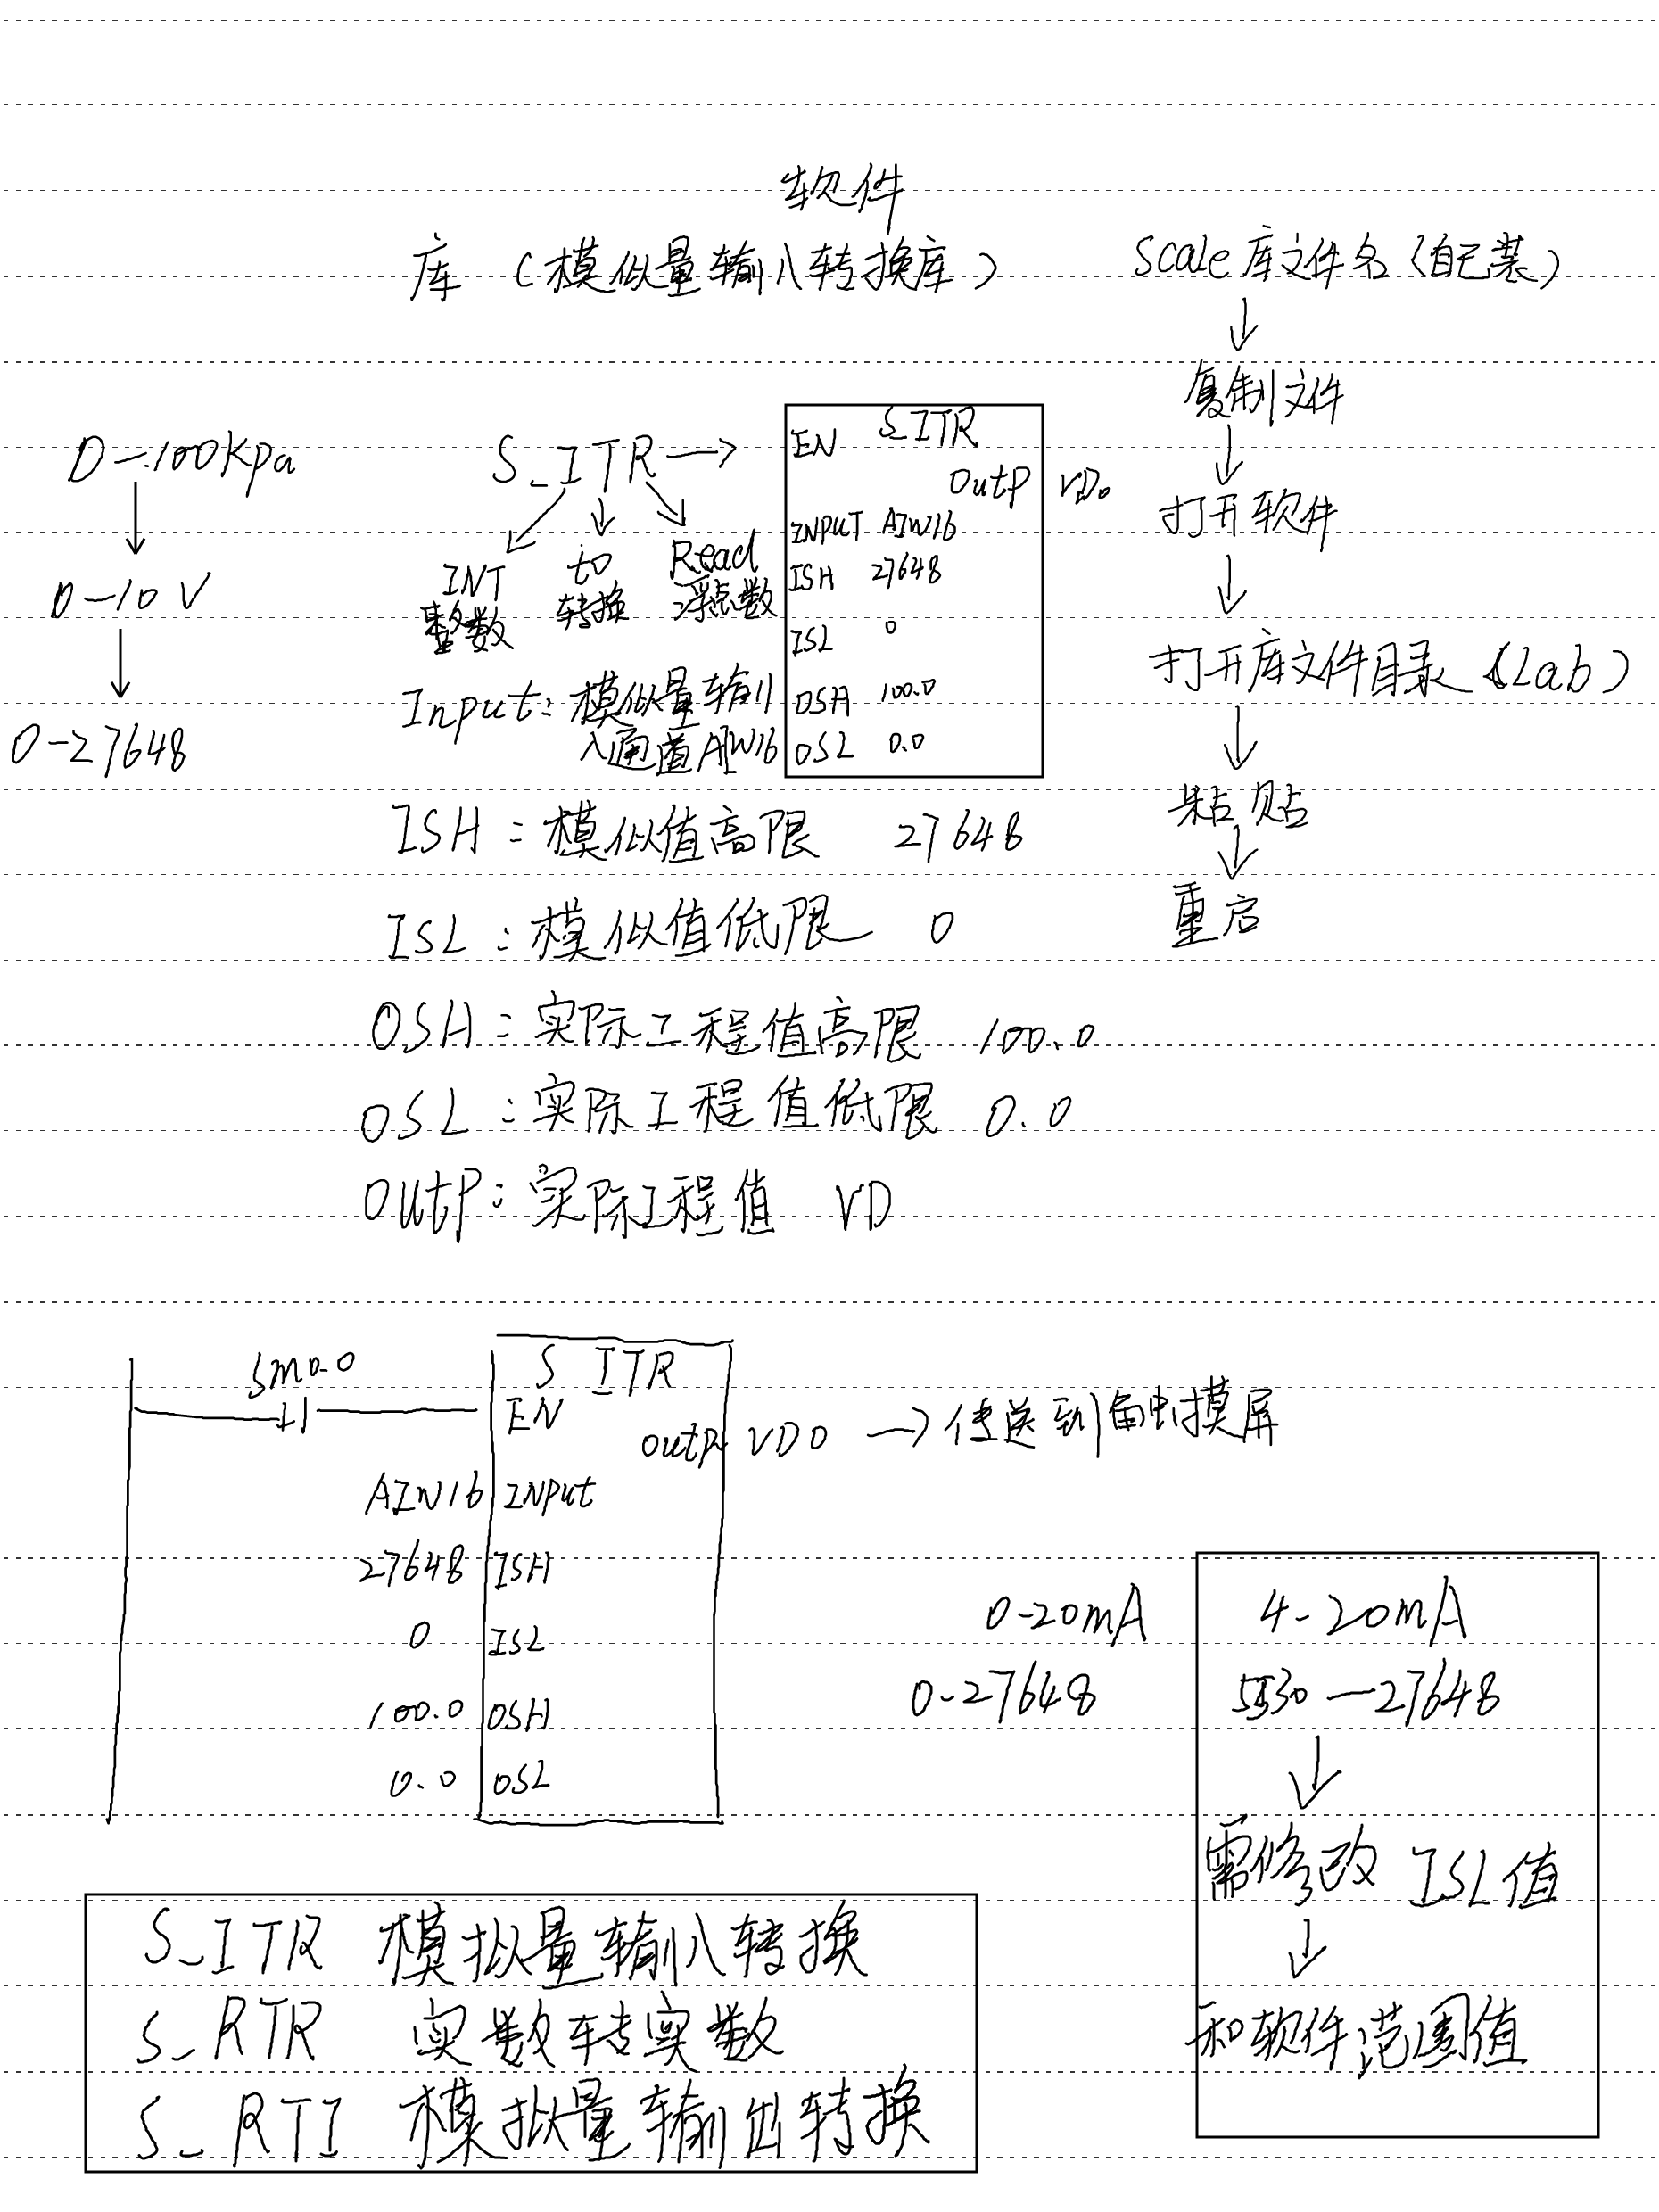 软件
库（模似量输入转换库）
Scale 库文件名（自己装）
复制文件
打开软件
打开库文件目录（Lab）
粘贴
重启
0-100Kpa
0-10V
0-27648
S_ITR
INT to Read
整数 转换 浮点数
S_ITR
EN
OutP VD0
INPUT AIW16
ISH 27648
ISL 0
OSH 100.0
OSL 0.0
Input：模似量输
入通道AIW16
ISH：模似值高限 27648
ISL：模似值低限 0
OSH：实际工程值高限 100.0
OSL：实际工程值低限 0.0
OutP：实际工程值 VD
SM0.0
S ITR
EN
outp VD0 → 传送到触摸屏
AIW16 INPut
27648 ISH
0 ISL
100.0 OSH
0.0 OSL
0-20mA
0-27648
4-20mA
5530—27648
需修改 ISL值
和软件范围值
S_ITR 模拟量输入转换
S_RTR 实数转实数
S_RTI 模拟量输出转换